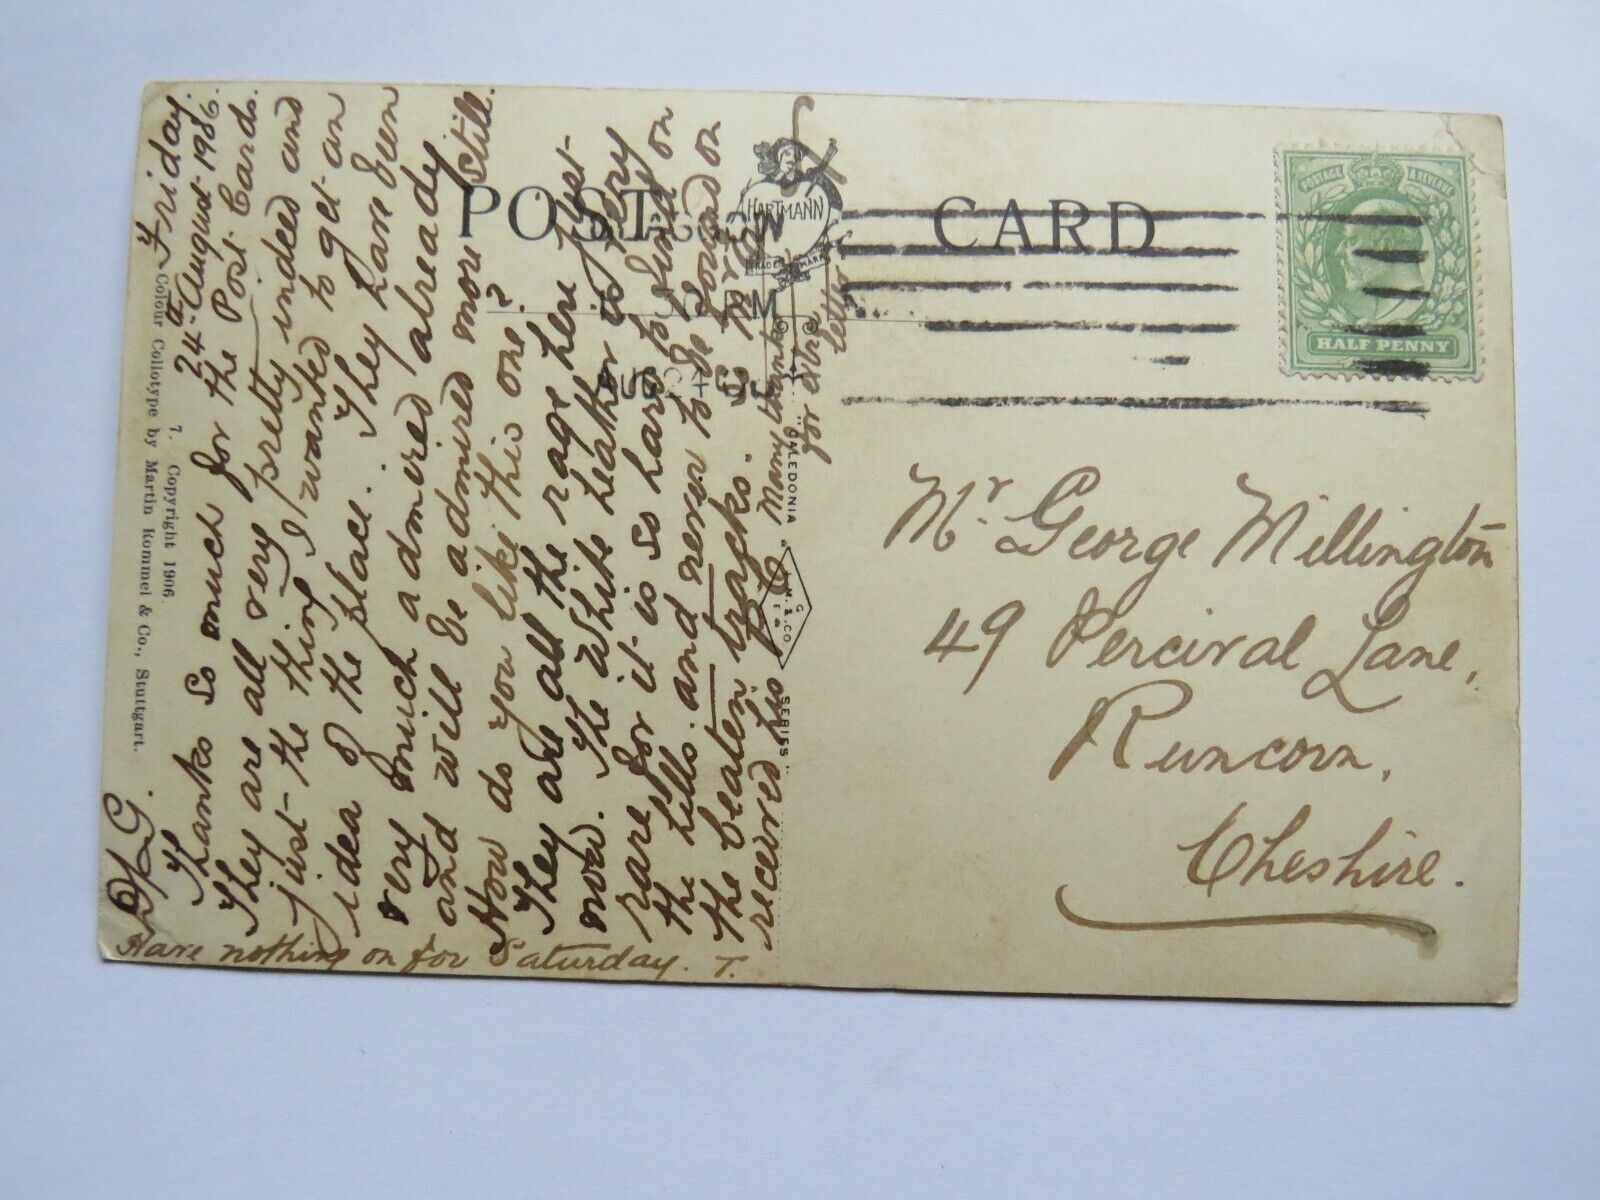 POST CARD
HARTMANN
TRADE MARK
POSTAGE & REVENUE
HALF PENNY
PM
Mr. George Millington
49 Percival Lane,
Runcorn,
Cheshire.
Friday.
24th August 1906.
D. G.
Thanks so much for the Post Cards.
They are all very pretty indeed and
just the thing I wanted to get an
idea of the place. They have been
very much admired already
and will be admired more still.
How do you like this one?
They are all the rage here just
now. The white heather is very
rare for it is so hard to find on
the hills. and never to be found on
the beaten tracks.
received his P.C.
Many thanks
for extra
letter
Have nothing on for Saturday. T.
7. Copyright 1906.
Colour Collotype by Martin Rommel & Co., Stuttgart.
"CALEDONIA
G
M. & CO.
SERIES"